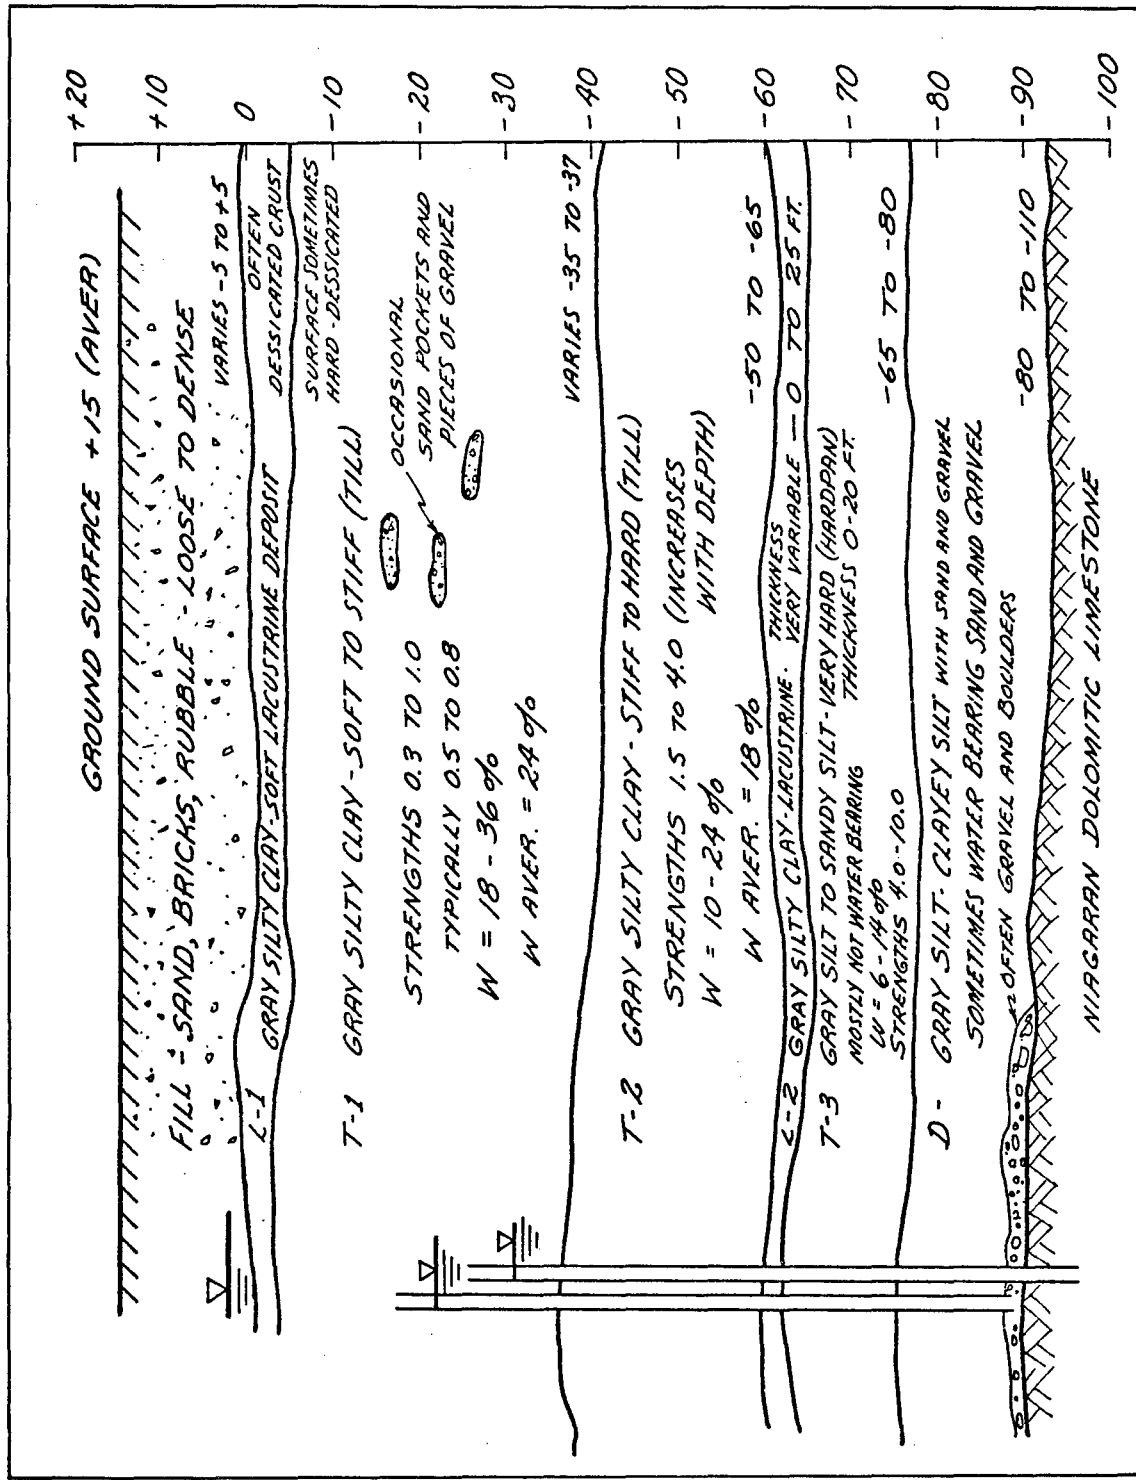 GROUND SURFACE +15 (AVER)
FILL - SAND, BRICKS, RUBBLE - LOOSE TO DENSE
VARIES -5 TO +5
L-1 GRAY SILTY CLAY-SOFT LACUSTRINE DEPOSIT
OFTEN
DESSICATED CRUST
SURFACE SOMETIMES
HARD-DESSICATED
T-1 GRAY SILTY CLAY-SOFT TO STIFF (TILL)
STRENGTHS 0.3 TO 1.0
TYPICALLY 0.5 TO 0.8
W = 18-36%
W AVER. = 24%
OCCASIONAL
SAND POCKETS AND
PIECES OF GRAVEL
VARIES -35 TO -37
T-2 GRAY SILTY CLAY-STIFF TO HARD (TILL)
STRENGTHS 1.5 TO 4.0 (INCREASES
WITH DEPTH)
W = 10-24%
W AVER. = 18%
-50 TO -65
L-2 GRAY SILTY CLAY-LACUSTRINE.
THICKNESS
VERY VARIABLE - 0 TO 25 FT.
T-3 GRAY SILT TO SANDY SILT-VERY HARD (HARDPAN)
MOSTLY NOT WATER BEARING THICKNESS 0-20 FT.
W = 6-14%
STRENGTHS 4.0-10.0
-65 TO -80
D- GRAY SILT-CLAYEY SILT WITH SAND AND GRAVEL
SOMETIMES WATER BEARING SAND AND GRAVEL
OFTEN GRAVEL AND BOULDERS
-80 TO -110
NIAGARAN DOLOMITIC LIMESTONE
+20
+10
0
-10
-20
-30
-40
-50
-60
-70
-80
-90
-100